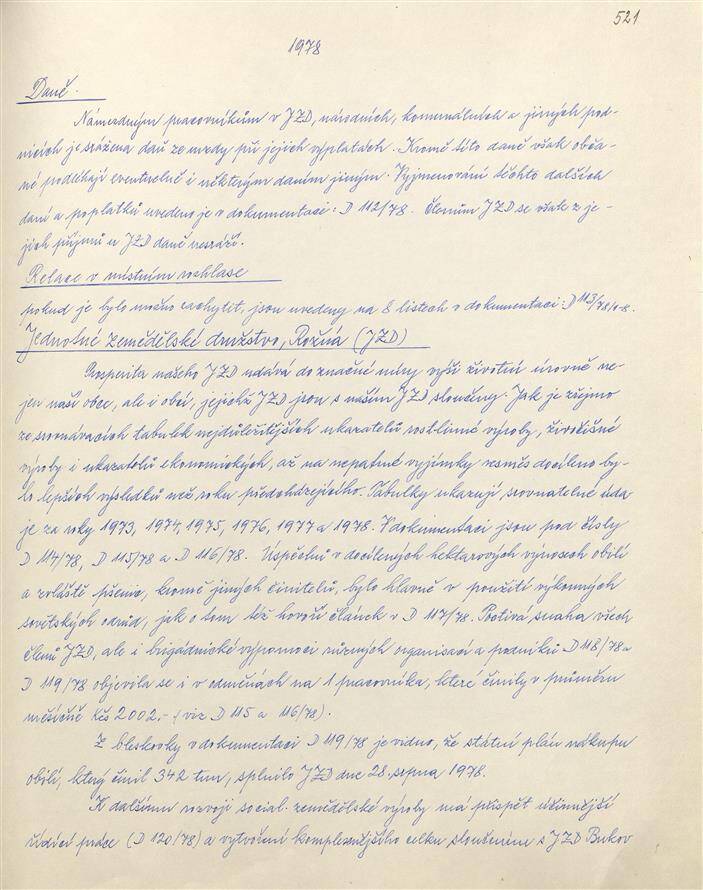 521
1978
Daně.
Námezdným pracovníkům v JZD, národních, komunálních a jiných pod-
nicích je srážena daň ze mzdy při jejich výplatách. Kromě této daně však obča-
né podléhají eventuelně i některým daním jiným. Vyjmenování těchto dalších
daní a poplatků uvedeno je v dokumentaci: D 112/78. Členům JZD se však z je-
jich příjmů u JZD daně nesráží.
Relace v místním rozhlase
pokud je bylo možno zachytit, jsou uvedeny na 8 listech v dokumentaci: D 113/78/1-8.
Jednotné zemědělské družstvo, Rožná (JZD)
Prosperita našeho JZD udává do značné míry výši životní úrovně ne-
jen naší obce, ale i obcí, jejichž JZD jsou s naším JZD sloučeny. Jak je zřejmo
ze srovnávacích tabulek nejdůležitějších ukazatelů rostlinné výroby, živočišné
výroby i ukazatelů ekonomických, až na nepatrné vyjímky vesměs docíleno by-
lo lepších výsledků než roku předcházejícího. Tabulky ukazují srovnatelné úda-
je za roky 1973, 1974, 1975, 1976, 1977 a 1978. V dokumentaci jsou pod čísly
D 114/78, D 115/78 a D 116/78. Úspěchů v docílených hektarových výnosech obilí
a zvláště pšenic, kromě jiných činitelů, bylo hlavně v použití výkonných
sovětských odrůd, jak o tom též hovoří článek v D 117/78. Poctivá snaha všech
členů JZD, ale i brigádnické výpomoci různých organisací a podniků D 118/78 a
D 119/78 objevila se i v odměnách na 1 pracovníka, které činily v průměru
měsíčně Kčs 2002,- (viz D 115 a 116/78).
Z bleskovky v dokumentaci D 119/78 je vidno, že státní plán nákupu
obilí, který činil 342 tun, splnilo JZD dne 28. srpna 1978.
K dalšímu rozvoji social. zemědělské výroby má přispět účinnější
řídící práce (D 120/78) a vytvoření komplexnějšího celku sloučením s JZD Bukov